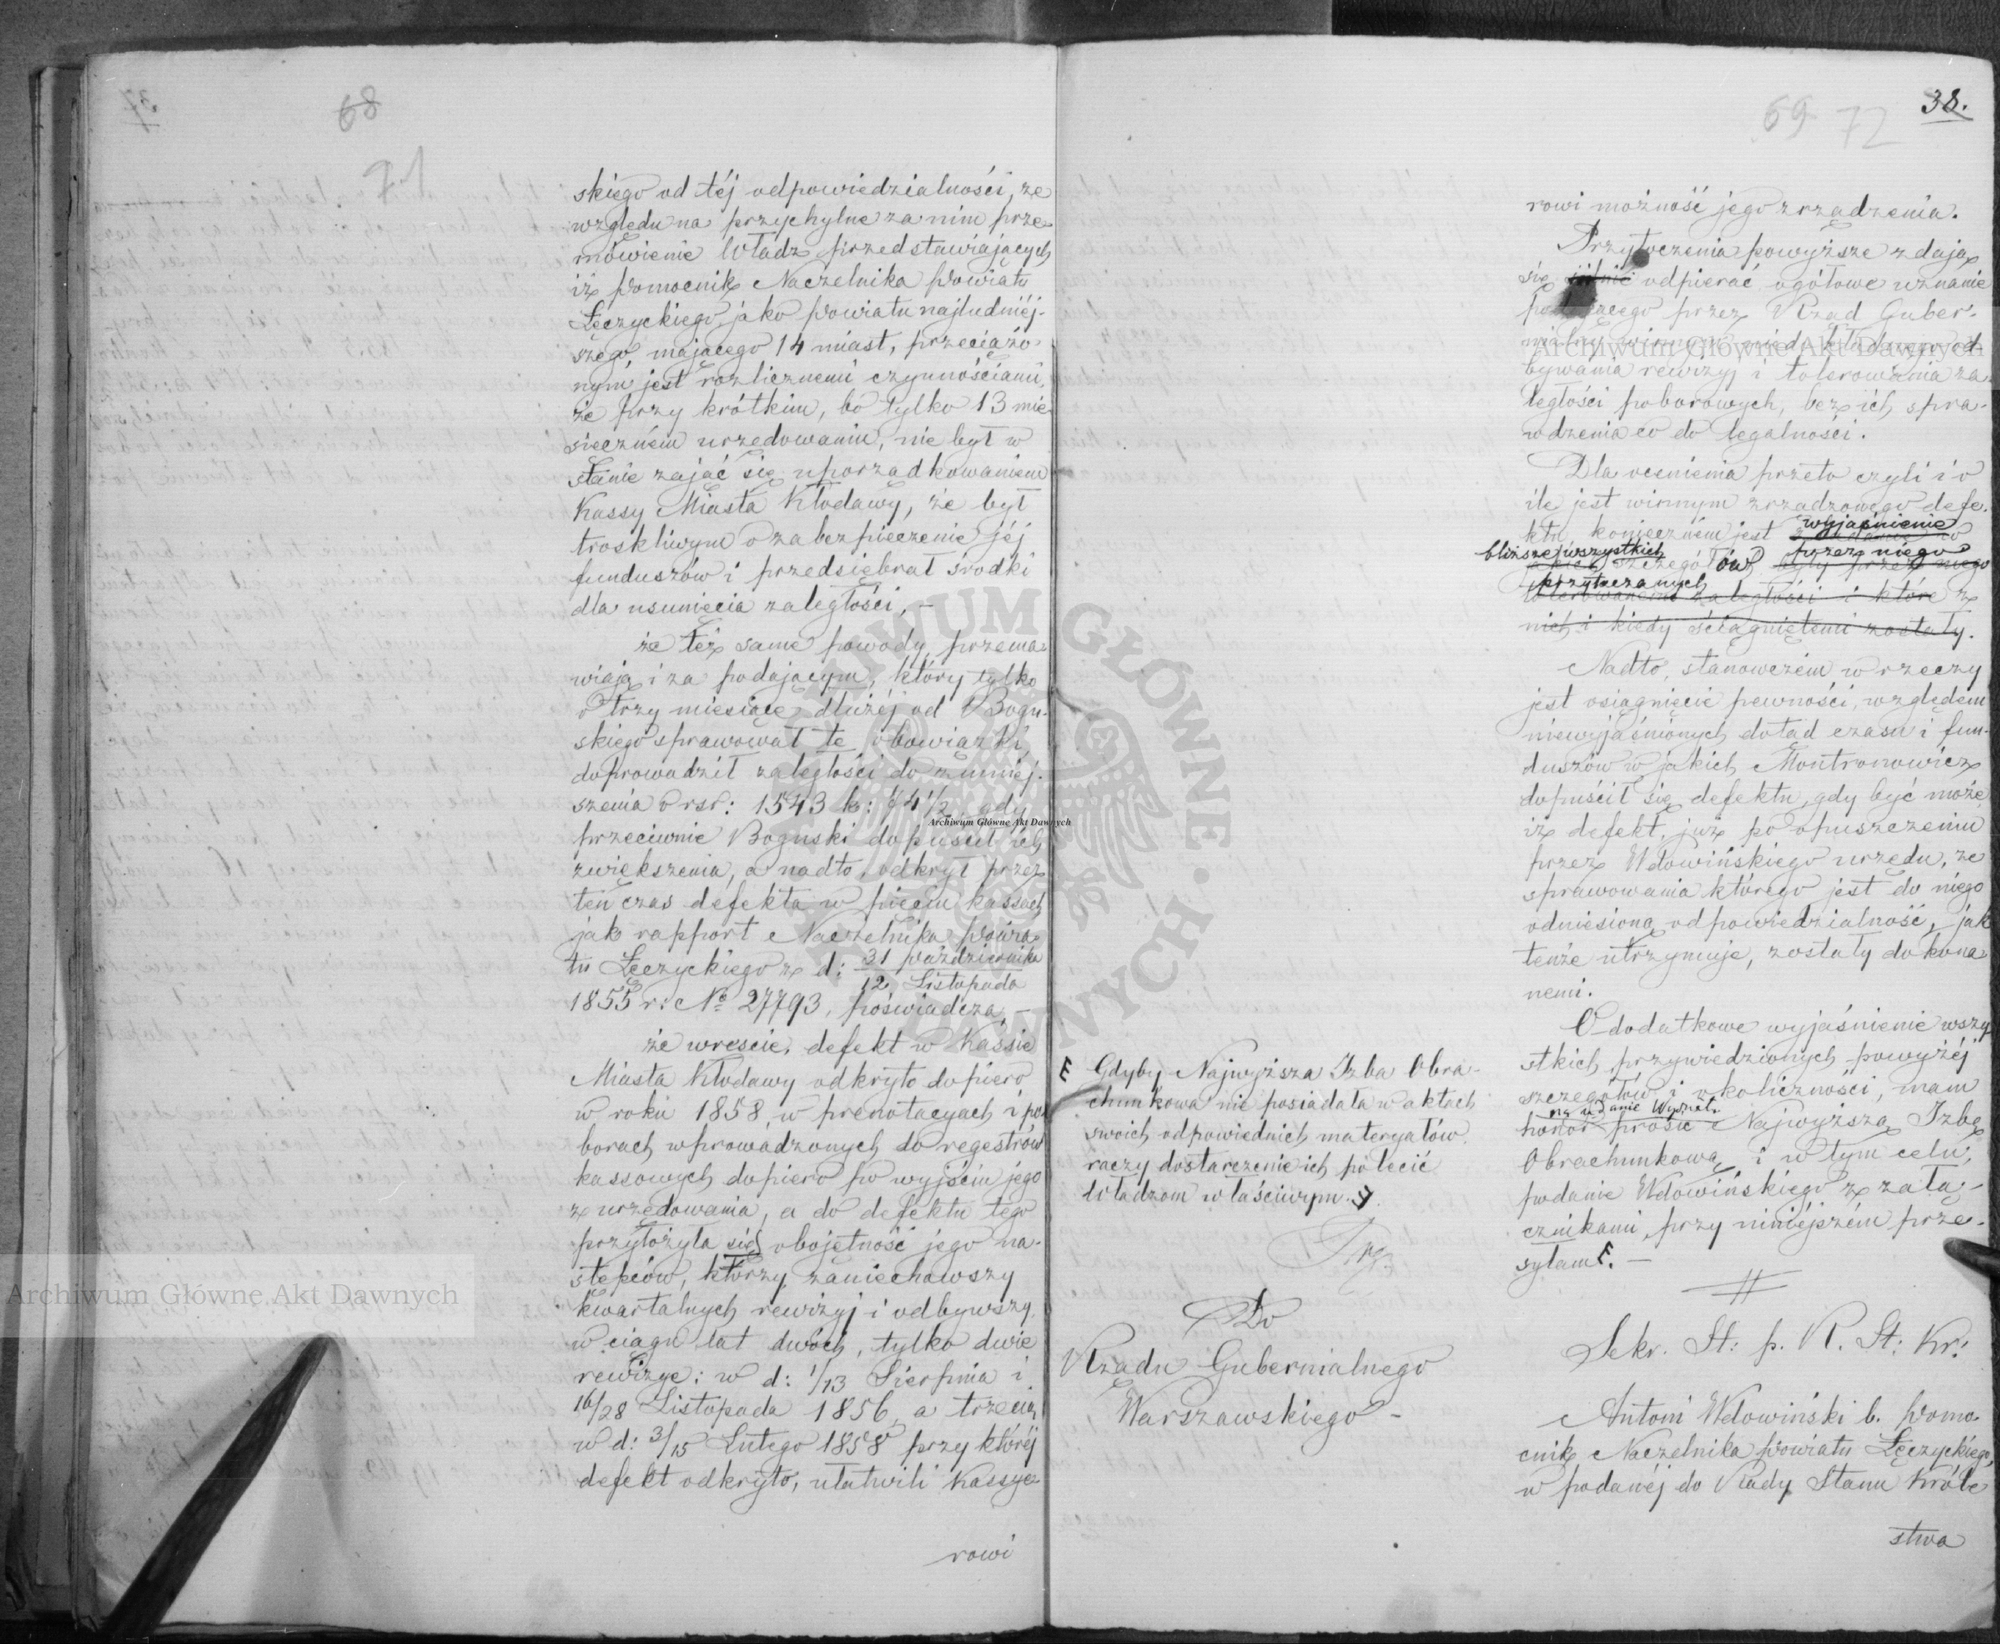 68
71
skiego od téj odpowiedzialności, ze
względu na przychylne za nim prze-
mówienie Władz przedstawiających
iż Pomocnik Naczelnika Powiatu
Łęczyckiego, jako Powiatu najludniéj-
szego, mającego 14 miast, przeciążo-
nym jest rozlicznemi czynnościami,
że przy krótkim, bo tylko 13 mie-
sięczném urzędowaniu, nie był w
stanie zająć się uporządkowaniem
Kassy Miasta Kłodawy, że był
troskliwym o zabezpieczenie jéj
funduszów i przedsiębrał środki
dla usunięcia zaległości, —
że też same powody przema-
wiają i za podającym, który tylko
o trzy miesiące dłużéj od Bogu-
skiego sprawował te obowiązki,
doprowadził zaległości do zmniéj-
szenia o rsr: 1543 k: 64½ gdy
przeciwnie Boguski dopuścił ich
zwiększenia, a nadto, odkrył przez
ten czas defekta w pięciu kassach
jak rapport Naczelnika Powia-
tu Łęczyckiego z d: 31 Października
12 Listopada
1855 r: No 27793, poświadcza, —
że wreście, defekt w Kassie
Miasta Kłodawy odkryto dopiero
w roku 1858, w prenotacyach i po-
borach wprowadzonych do regestrów
kassowych dopiero po wyjściu jego
z urzędowania, a do defektu tego
przyłożyła się obojętność jego na-
stępców, którzy zaniechawszy
kwartalnych rewizyj i odbywszy
w ciągu lat dwóch, tylko dwie
rewizye: w d: 1/13 Sierpnia i
16/28 Listopada 1856, a trzecią
w d: 3/15 Lutego 1858 przy któréj
defekt odkryto, ułatwili Kassye-
rowi
69 72
38.
rowi możność jego zrządzenia.
Przytoczenia powyższe zdają
się odpierać ogółowe uznanie
podającego przez Rząd Guber-
nialny winnym niedokładnego od-
bywania rewizyj i tolerowania za-
ległości poborowych, bez ich spra-
wdzenia co do legalności.
Dla ocenienia przeto czyli i o
ile jest winnym zrządzonego defe-
ktu koniecznem jest wyjaśnienie
bliższe wszystkich szczegółów przez niego
przytoczonych
tolerowanemi zaległości i które z
nich i kiedy ściągniętemi zostały.
Nadto, stanowczém w rzeczy
jest osiągnięcie pewności, względem
niewyjaśnionych dotąd czasu i fun-
duszów w jakich Montronowicz
dopuścił się defektu, gdy być może
iż defekt, już po opuszczeniu
przez Wdowińskiego urzędu, ze
sprawowania którego jest do niego
odniesioną odpowiedzialność, jak
tenże utrzymuje, zostały dokona-
nemi.
O dodatkowe wyjaśnienie wszy-
stkich przywiedzionych powyżéj
szczegółów i okoliczności, mam
honor prosić Najwyższą Izbę
Obrachunkową i w tym celu,
podanie Wdowińskiego z zała-
cznikami, przy niniéjszém prze-
syłam. —
Gdyby Najwyższa Izba Obra-
chunkowa nie posiadała w aktach
swoich odpowiednich materyałów
raczy dostarczenie ich polecić
Władzom właściwym.
Do
Rządu Gubernialnego
Warszawskiego —
Sekr. St: p. R. St: Kr:
Antoni Wdowiński b. Pomo-
cnik Naczelnika Powiatu Łęczyckiego,
w podanéj do Rady Stanu Króle-
stwa
Archiwum Główne Akt Dawnych
Archiwum Główne Akt Dawnych
Archiwum Główne Akt Dawnych
ARCHIWUM GŁÓWNE AKT DAWNYCH